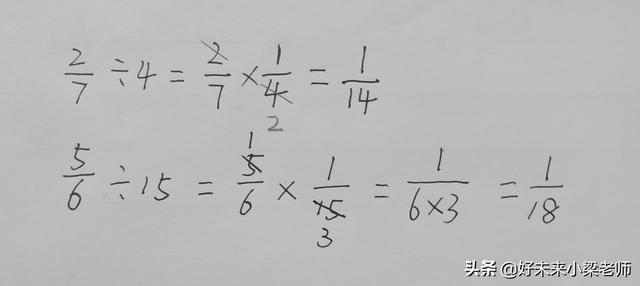 2/7 ÷ 4 = 2/7 × 1/4 = 1/14
2
1
5/6 ÷ 15 = 5/6 × 1/15 = 1/(6×3) = 1/18
3
头条 @好未来小梁老师